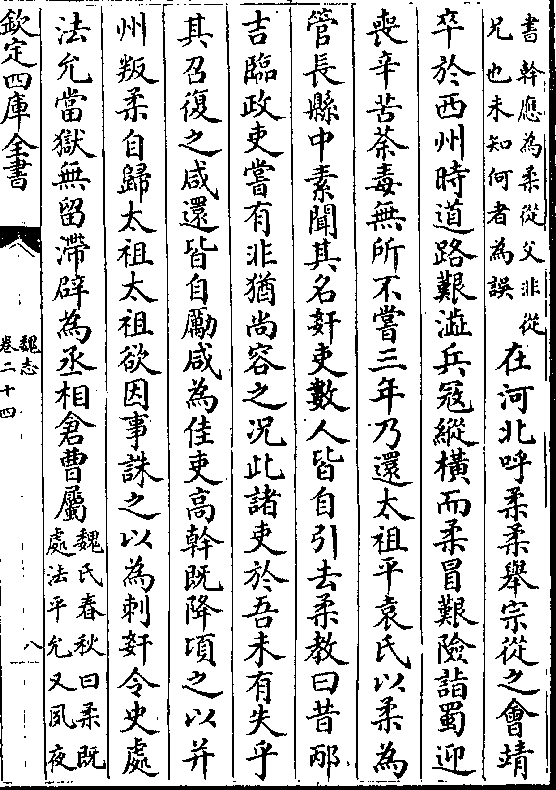 書幹應為柔從父非從
兄也未知何者為誤
在河北呼柔柔舉宗從之會靖
卒於西州時道路艱澁兵冦縱橫而柔冒艱險詣蜀迎
喪辛苦荼毒無所不嘗三年乃還太祖平袁氏以柔為
管長縣中素聞其名奸吏數人皆自引去柔教曰昔邴
吉臨政吏嘗有非猶尚容之况此諸吏於吾未有失乎
其召復之咸還皆自勵咸為佳吏高幹既降頃之以并
州叛柔自歸太祖太祖欲因事誅之以為刺奸令史處
法允當獄無留滯辟為丞相倉曹屬
魏氏春秋曰柔既
處法平允又夙夜
欽定四庫全書
魏志
卷二十四
八